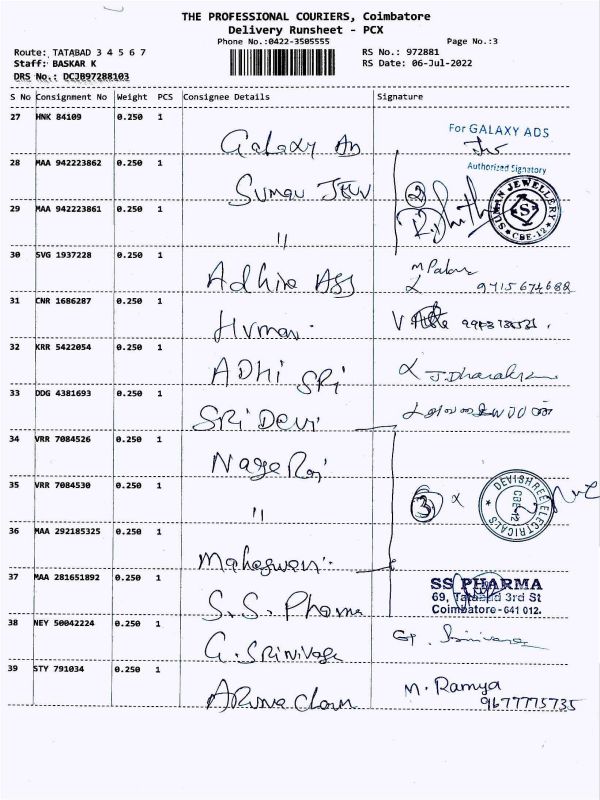 THE PROFESSIONAL COURIERS, Coimbatore
Delivery Runsheet - PCX
Phone No.:0422-3505555
Page No.:3
Route: TATABAD 3 4 5 6 7
RS No.: 972881
Staff: BASKAR K
RS Date: 06-Jul-2022
DRS No.: DCJB97288103
S No Consignment No Weight PCS Consignee Details Signature
27 HNK 84109 0.250 1
Galaxy An
For GALAXY ADS
Authorized Signatory
28 MAA 942223862 0.250 1
Suman Jew
2
SUMAN JEWELLERY
S
CBE-12
29 MAA 942223861 0.250 1
"
30 SVG 1937228 0.250 1
Adhira Ass
9715674688
31 CNR 1686287 0.250 1
32 KRR 5422054 0.250 1
ADhi SRi
33 DDG 4381693 0.250 1
SRi Devi
34 VRR 7084526 0.250 1
Nage Raj
35 VRR 7084530 0.250 1
"
3
DEVISHREE ELECTRICALS
CBE-12
36 MAA 292185325 0.250 1
37 MAA 281651892 0.250 1
S.S. Pharma
SS PHARMA
69, Tatabad 3rd St
Coimbatore-641 012.
38 NEY 50042224 0.250 1
G. SRiNivase
39 STY 791034 0.250 1
M. Ramya
9677775735